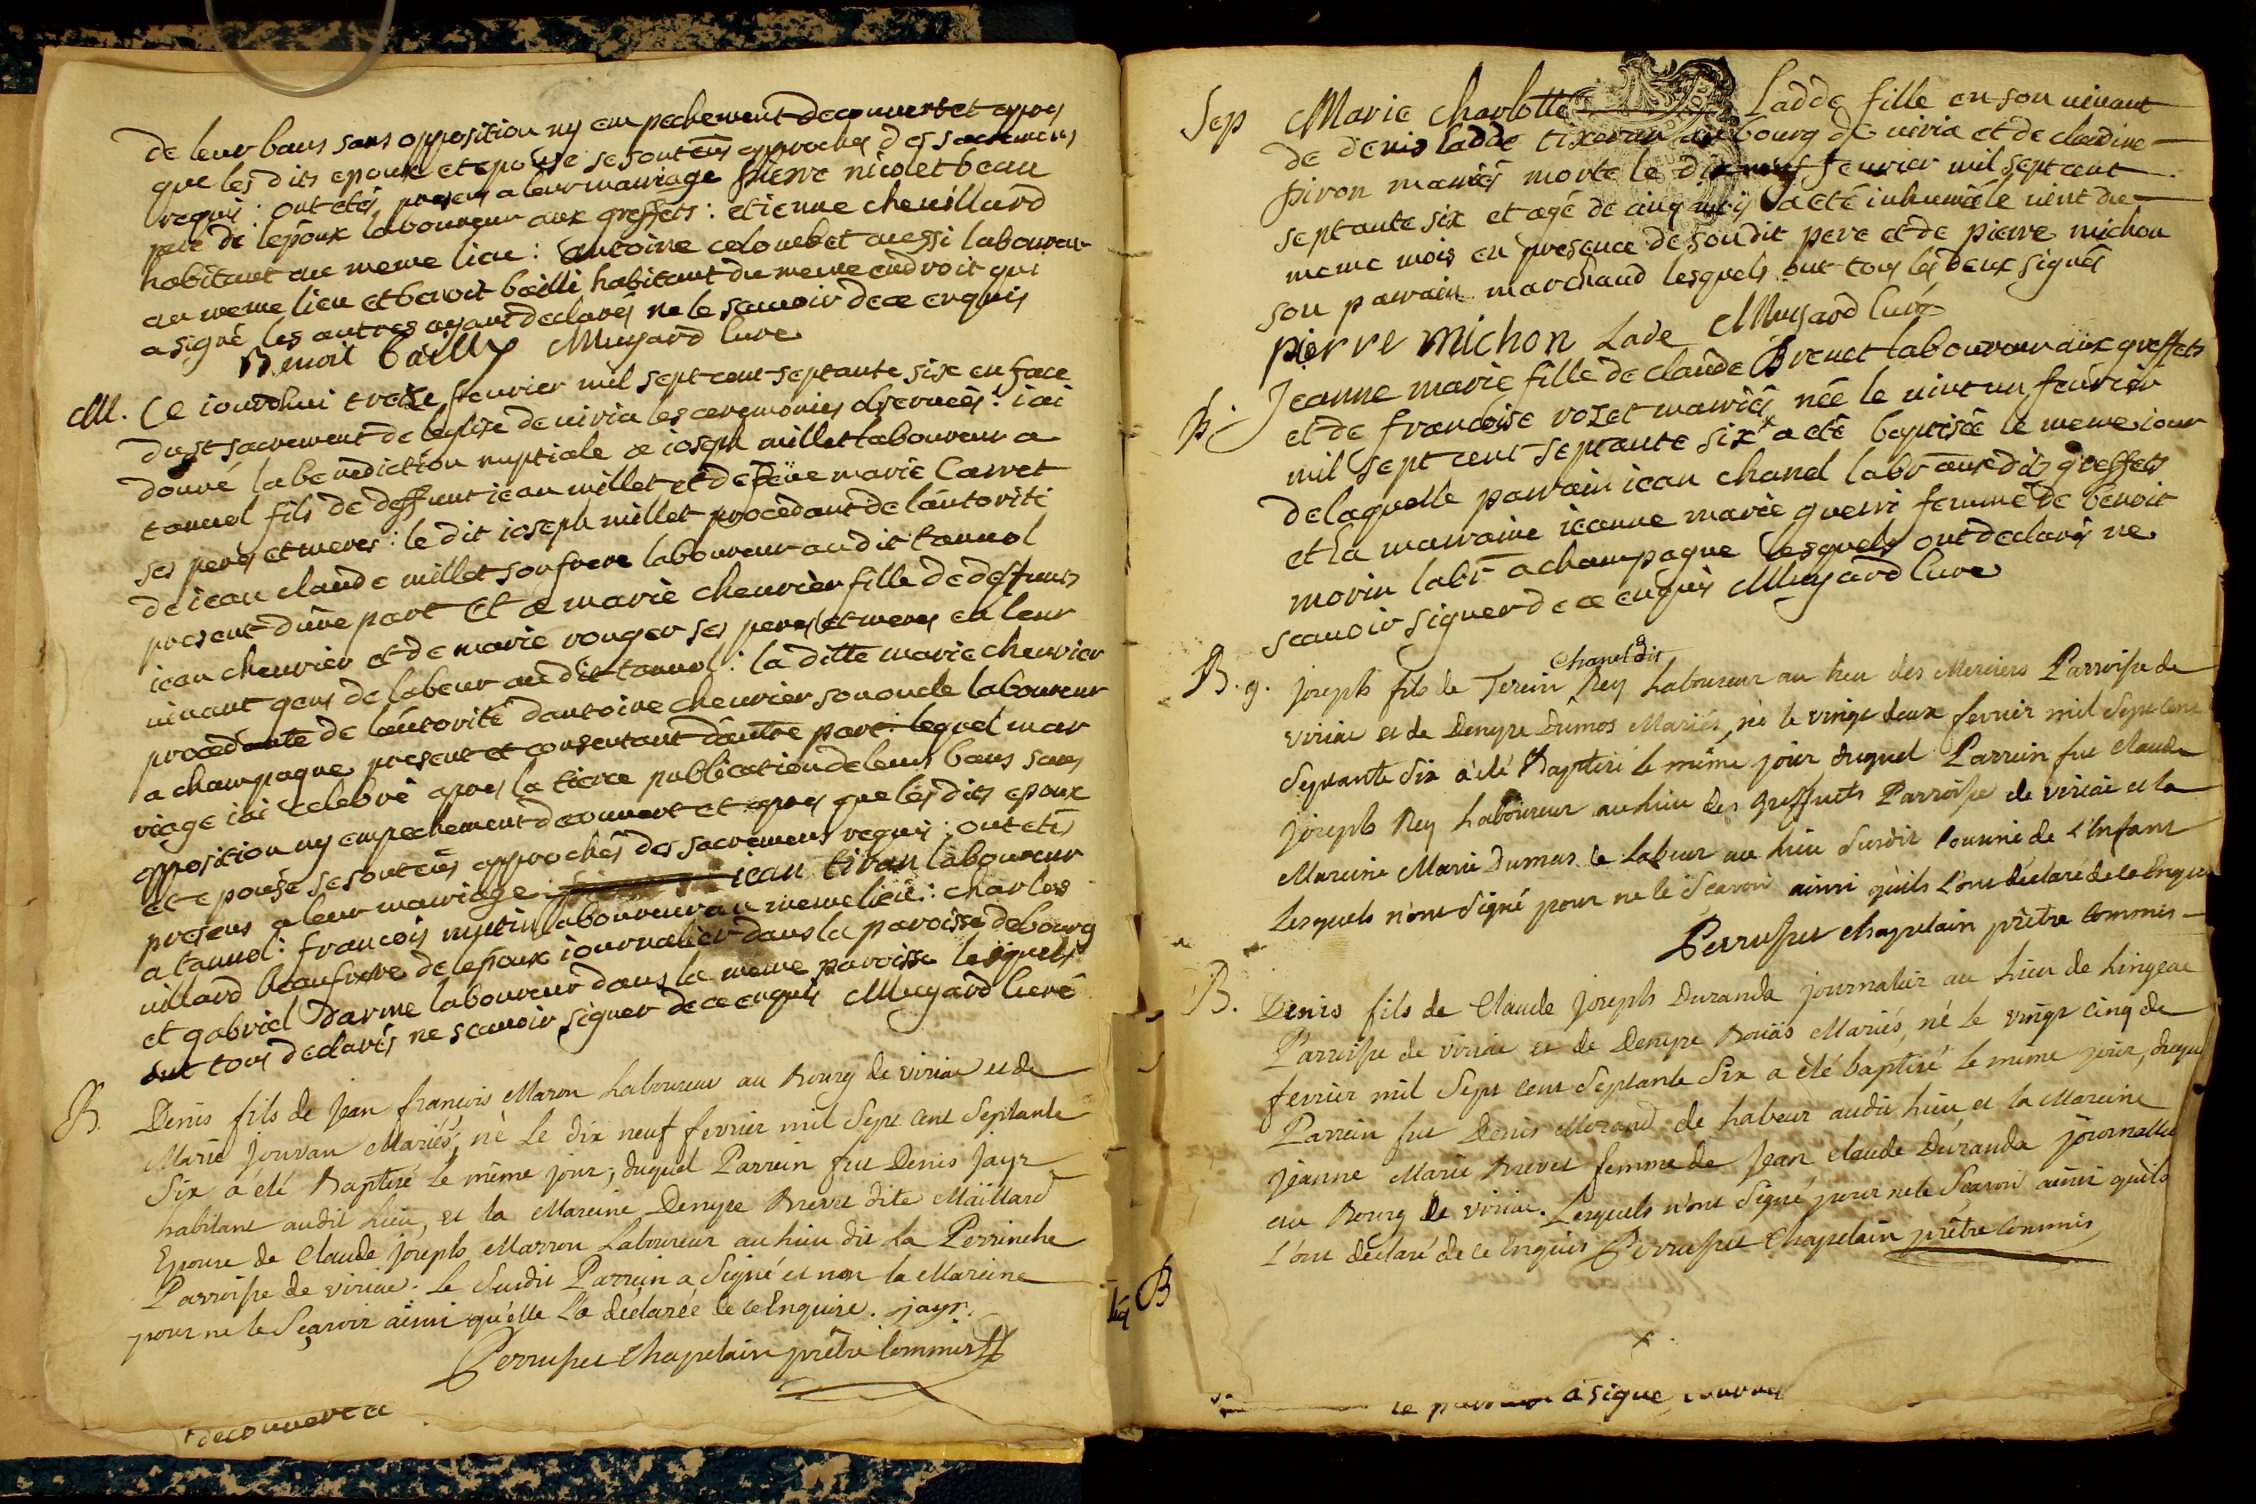 de leur bans sans opposition ny empechement decouvert et apres
que les dits epoux et epouse se sont eûs approchés des sacremens
requis : ont etés presens a leur mariage pierre nicolet beau
pere de lepoux laboureur aux greffets : etienne cheuillard
habitant au meme lieu : antoine colombet aussi laboureur
au meme lieu et benoit bailli habitant du meme endroit qui
a signé les autres ayant declarés ne le scauoir de ce enquis
Benoit bailly Muyard Cure
M. Ce iourdhui treize feurier mil sept cent septante six en face
du st sacrement de leglise de uiria les ceremonies obseruées : iai
donné la benediction nuptiale a ioseph millet laboureur a
tannol fils de deffunt iean millet et de feüe marie Carret
ses peres et meres : le dit ioseph millet procedant de lautorité
de iean claude millet son frere laboureur audit tannol
present dune part Et a marie cheurier fille de defunts
iean cheurier et de marie rouger ses peres et meres en leur
uiuant gens de labeur audit tannol : la ditte marie cheurier
procedante de lautorité dantoine cheurier son oncle laboureur
a champagne present et consentant dautre part lequel mar
riage iai celebré apres la tierce publication de leurs bans sans
opposition ny empechement decouvert et apres que les dits epoux
et epouse se sont eûs approchés des sacremens requis : ont etés
presens a leur mariage iean tiran laboureur
a tannol : francois mutin laboureur au meme lieu : charles
uillard beaufrere de lepoux iournalier dans la paroisse de bourg
et gabriel darme laboureur dans la meme paroisse lesquels
ont tous declarés ne scauoir signer de ce enquis Muyard Curé
B. Denis fils de Jean françois Maron Laboureur au Bourg de viriae et de
Marie Jouvan Mariés, né Le dix neuf fevrier mil Sept Cent Septante
Six a été Baptisé Le même jour, duquel Parrein fut Denis Jayr
habitant audit Lieu, et la Mareine Denyse Brevet dite Maillard
Epouse de Claude joseph Marron Laboureur au Lieu dit La Perrinche
Parroisse de viriae. Le Susdit Parrein a Signé et non la Mareine
pour ne le Sçavoir ainsi qu'elle L'a déclarée de ce Enquise. jayr.
Perrusset Chapelain prêtre Commis
+ decouvert a
Sep Marie Charlotte Ladde fille en son uiuant
de denis ladde tixeran au bourg de uiria et de claudine
piron mariés morte le dix neuf feurier mil sept cent
septante six et agé de cinq mois a eté inhumée le uint du
meme mois en presence de son dit pere et de pierre michon
son parrain marchand lesquels ont tous les deux signés
pierre Michon Lade Muyard Curé
B. Jeanne marie fille de claude Breuet laboureur aux greffets
et de francoise rozet mariés née le uint un feurier
mil sept cent septante six + a eté baptisée le meme iour
de laquelle parrain iean chanel labr aux dits greffets
et la marraine ieanne marie guerri femme de benoit
morin labr a champagne lesquels ont declarés ne
scauoir signer de ce enquis Muyard Cure
chanel dit
B. g. joseph fils de Terein Rey Laboureur au Lieu des Merciers Parroisse de
viriae et de Denyse Dumos Mariés, né le vingt deux fevrier mil Sept Cent
Septante Six a été Baptisé le même jour, duquel Parrein fut Claude
joseph Rey Laboureur au Lieu des Greffets Parroisse de viriae et la
Mareine Marie Dumas de Labeur au Lieu Susdit Cousine de L'Enfant
Lesquels n'ont Signé pour ne le Sçavoir ainsi qu'ils L'ont déclaré de ce Enquis
Perrusset Chapelain prêtre Commis
B. Denis fils de Claude Joseph Duranda journalier au Lieu de Lingeae
Parroisse de viriae et de Denyse Bouis Mariés, né le vingt cinq de
fevrier mil Sept Cent Septante Six a été baptisé Le même jour, duquel
Parrein fut Denis Morand de Labeur audit Lieu et la Mareine
Jeanne Marie Brevet femme de Jean Claude Duranda journallier
au Bourg de viriae. Lesquels n'ont Signé pour ne le Sçavoir ainsi qu'ils
L'ont déclaré de ce Enquis Perrusset Chapelain prêtre Commis
B
+
le a signe